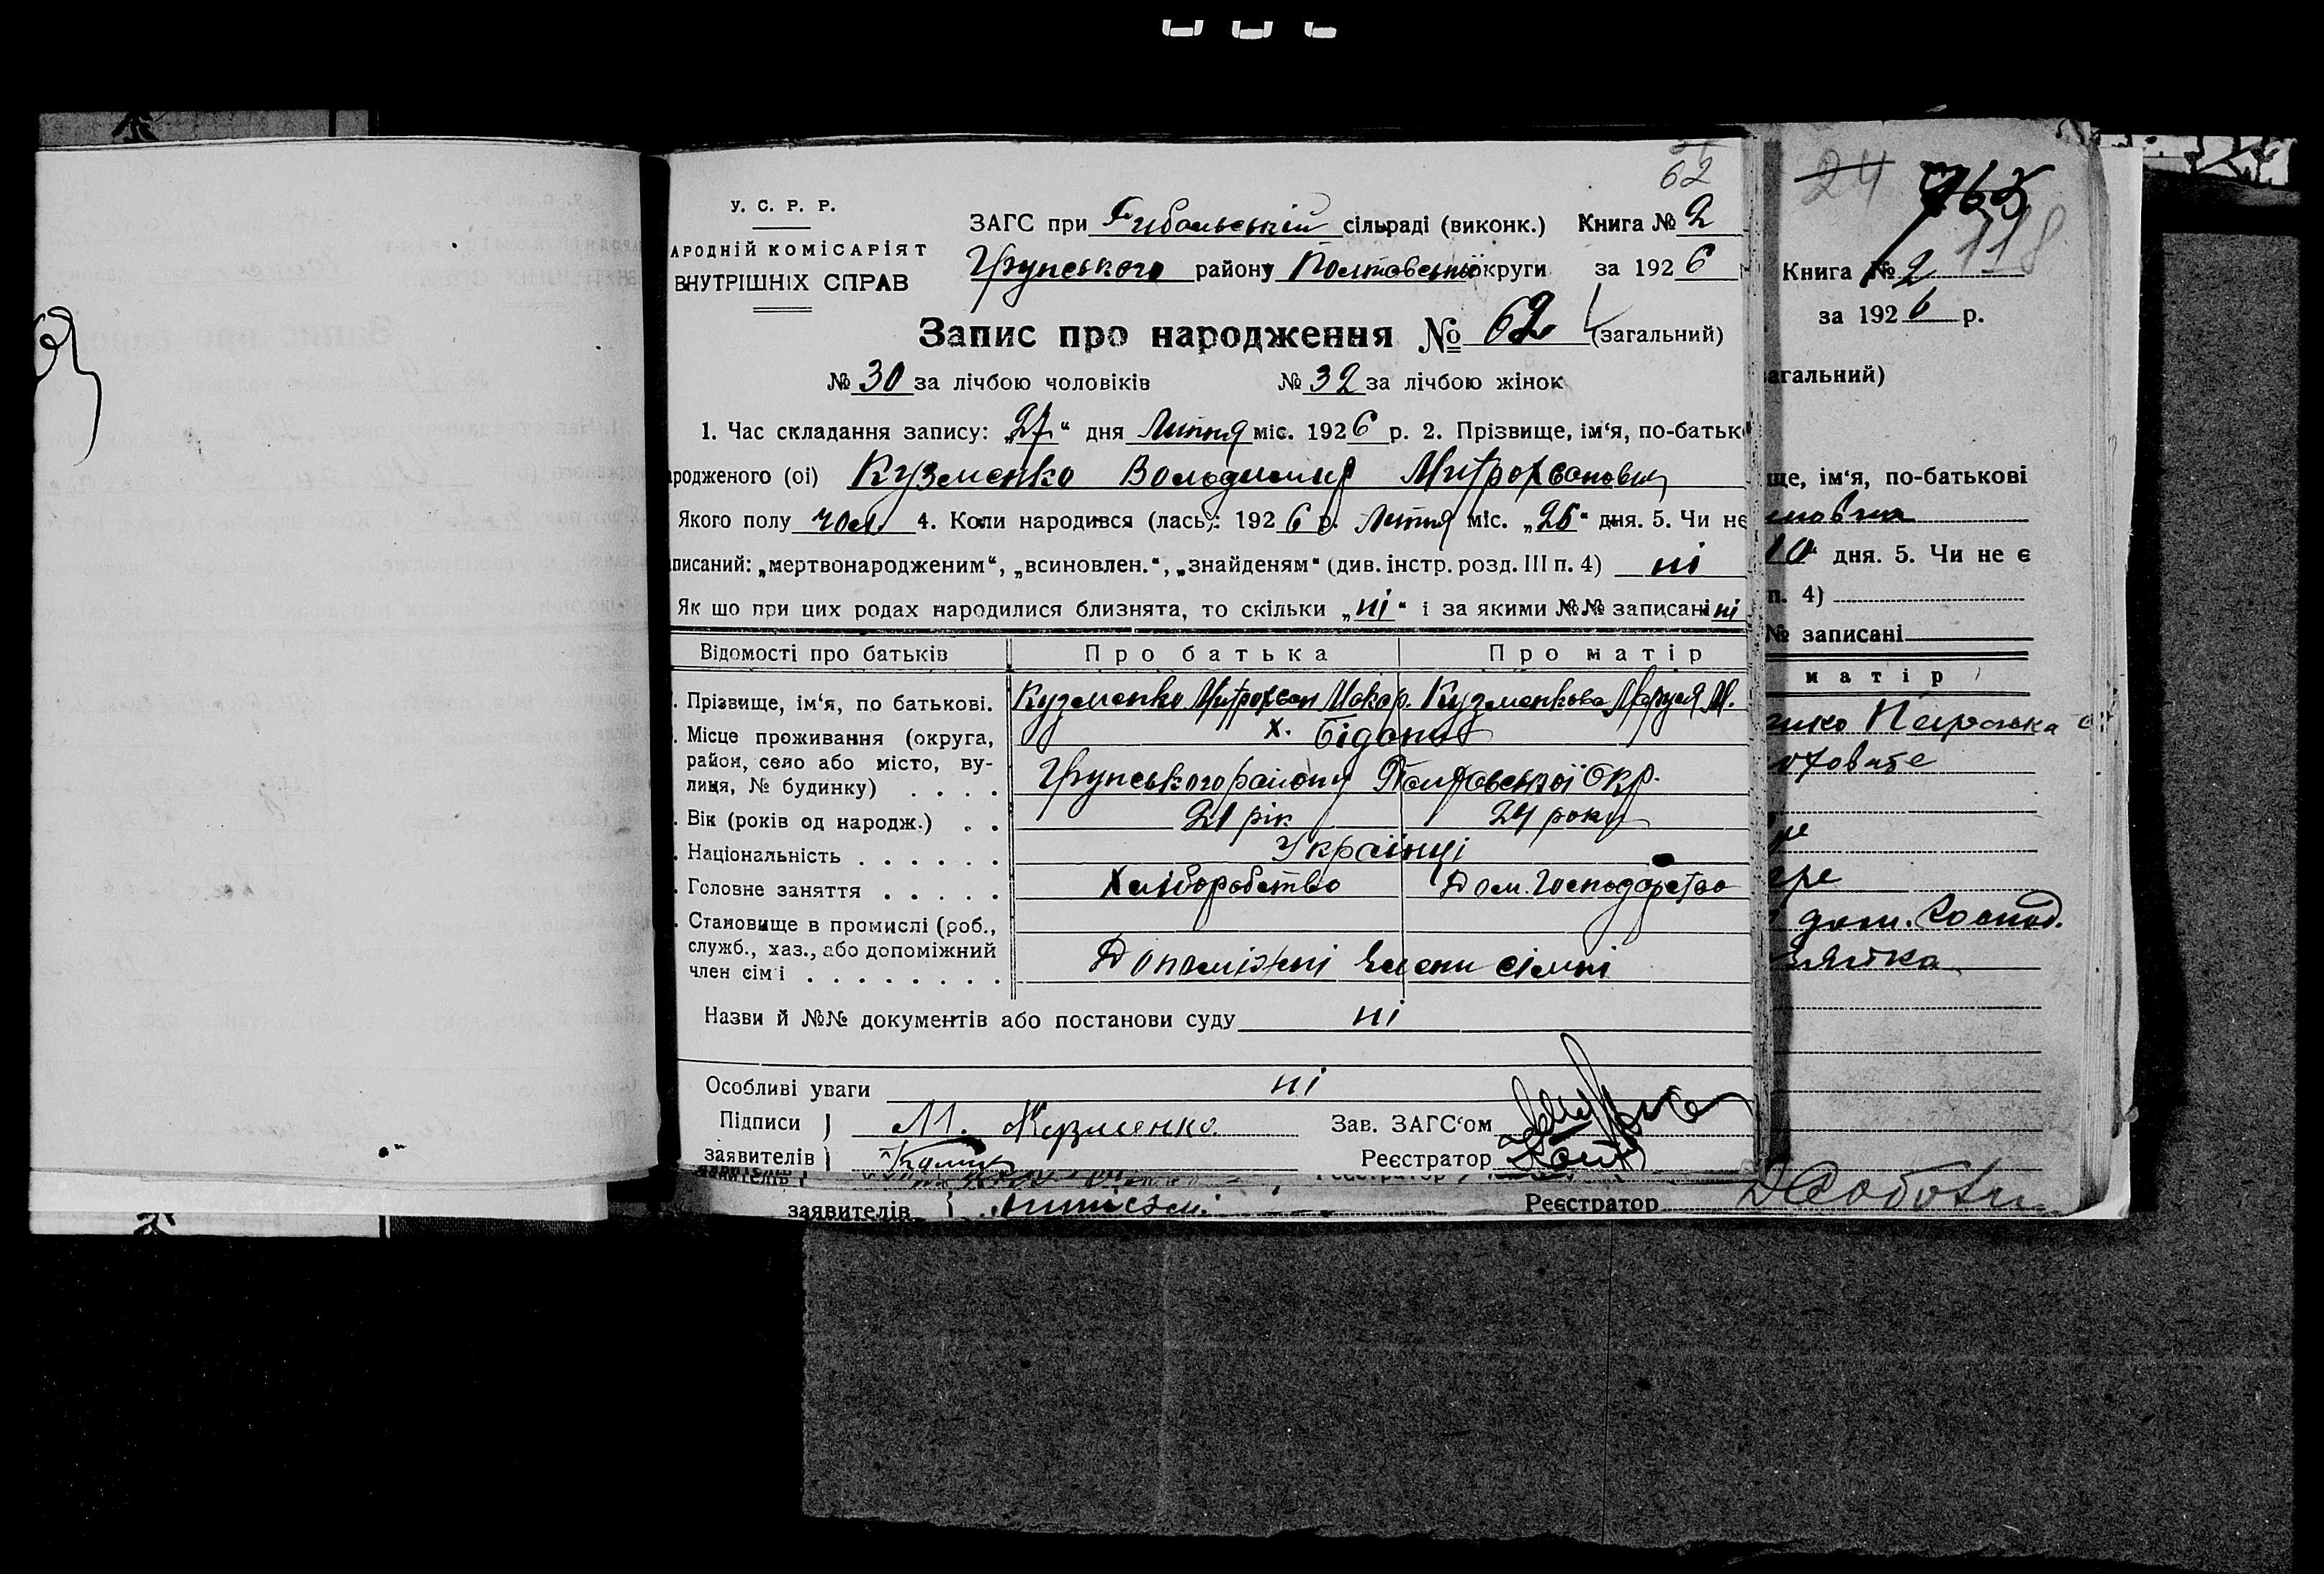 62
У. С. Р. Р.
ЗАГС при сільраді (виконк.) Книга № 2
АРОДНІЙ КОМІСАРІЯТ
ВНУТРІШНІХ СПРАВ
Грунського району Полтавської округи за 1926
Запис про народження № 62 (загальний)
№ 30 за лічбою чоловіків № 32 за лічбою жінок
1. Час складання запису: „27“ дня Липня міс. 1926 р. 2. Прізвище, ім‘я, по-батьк
родженого (ої) Кузменко Володимир Митрохванович
Якого полу чол. 4. Коли народився (лась): 1926 р. Липня міс. „26“ дня. 5. Чи не
писаний: „мертвонародженим“, „всиновлен.“, „знайденям“ (див. інстр. розд. III п. 4) ні
Як що при цих родах народилися близнята, то скільки „ні“ і за якими №№ записані ні
Відомості про батьків Про батька Про матір
. Прізвище, ім‘я, по батькові. Кузменко Митрохван Макар. Кузменкова Маруся М.
. Місце проживання (округа, х. Бідани
район, село або місто, ву-
лиця, № будинку) . . . . Грунського району Полтавської Окр.
. Вік (років од народж.) . . 21 рік 24 роки
. Національність . . . . . . Українці
. Головне заняття . . . . . Хліборобство Дом. Господарство
. Становище в промислі (роб.,
служб., хаз., або допоміжний
член сім‘ї . . . . . . . . Допоміжні члени сімні
Назви й №№ документів або постанови суду ні
Особливі уваги ні
Підписи
заявителів М. Кузменко
Зав. ЗАГС‘ом
Реєстратор
заявителів Реєстратор
24 118
Книга № 2
за 1926 р.
агальний)
ще, ім‘я, по-батькові
10“ дня. 5. Чи не є
п. 4)
№ записані
матір
дом. Господ.